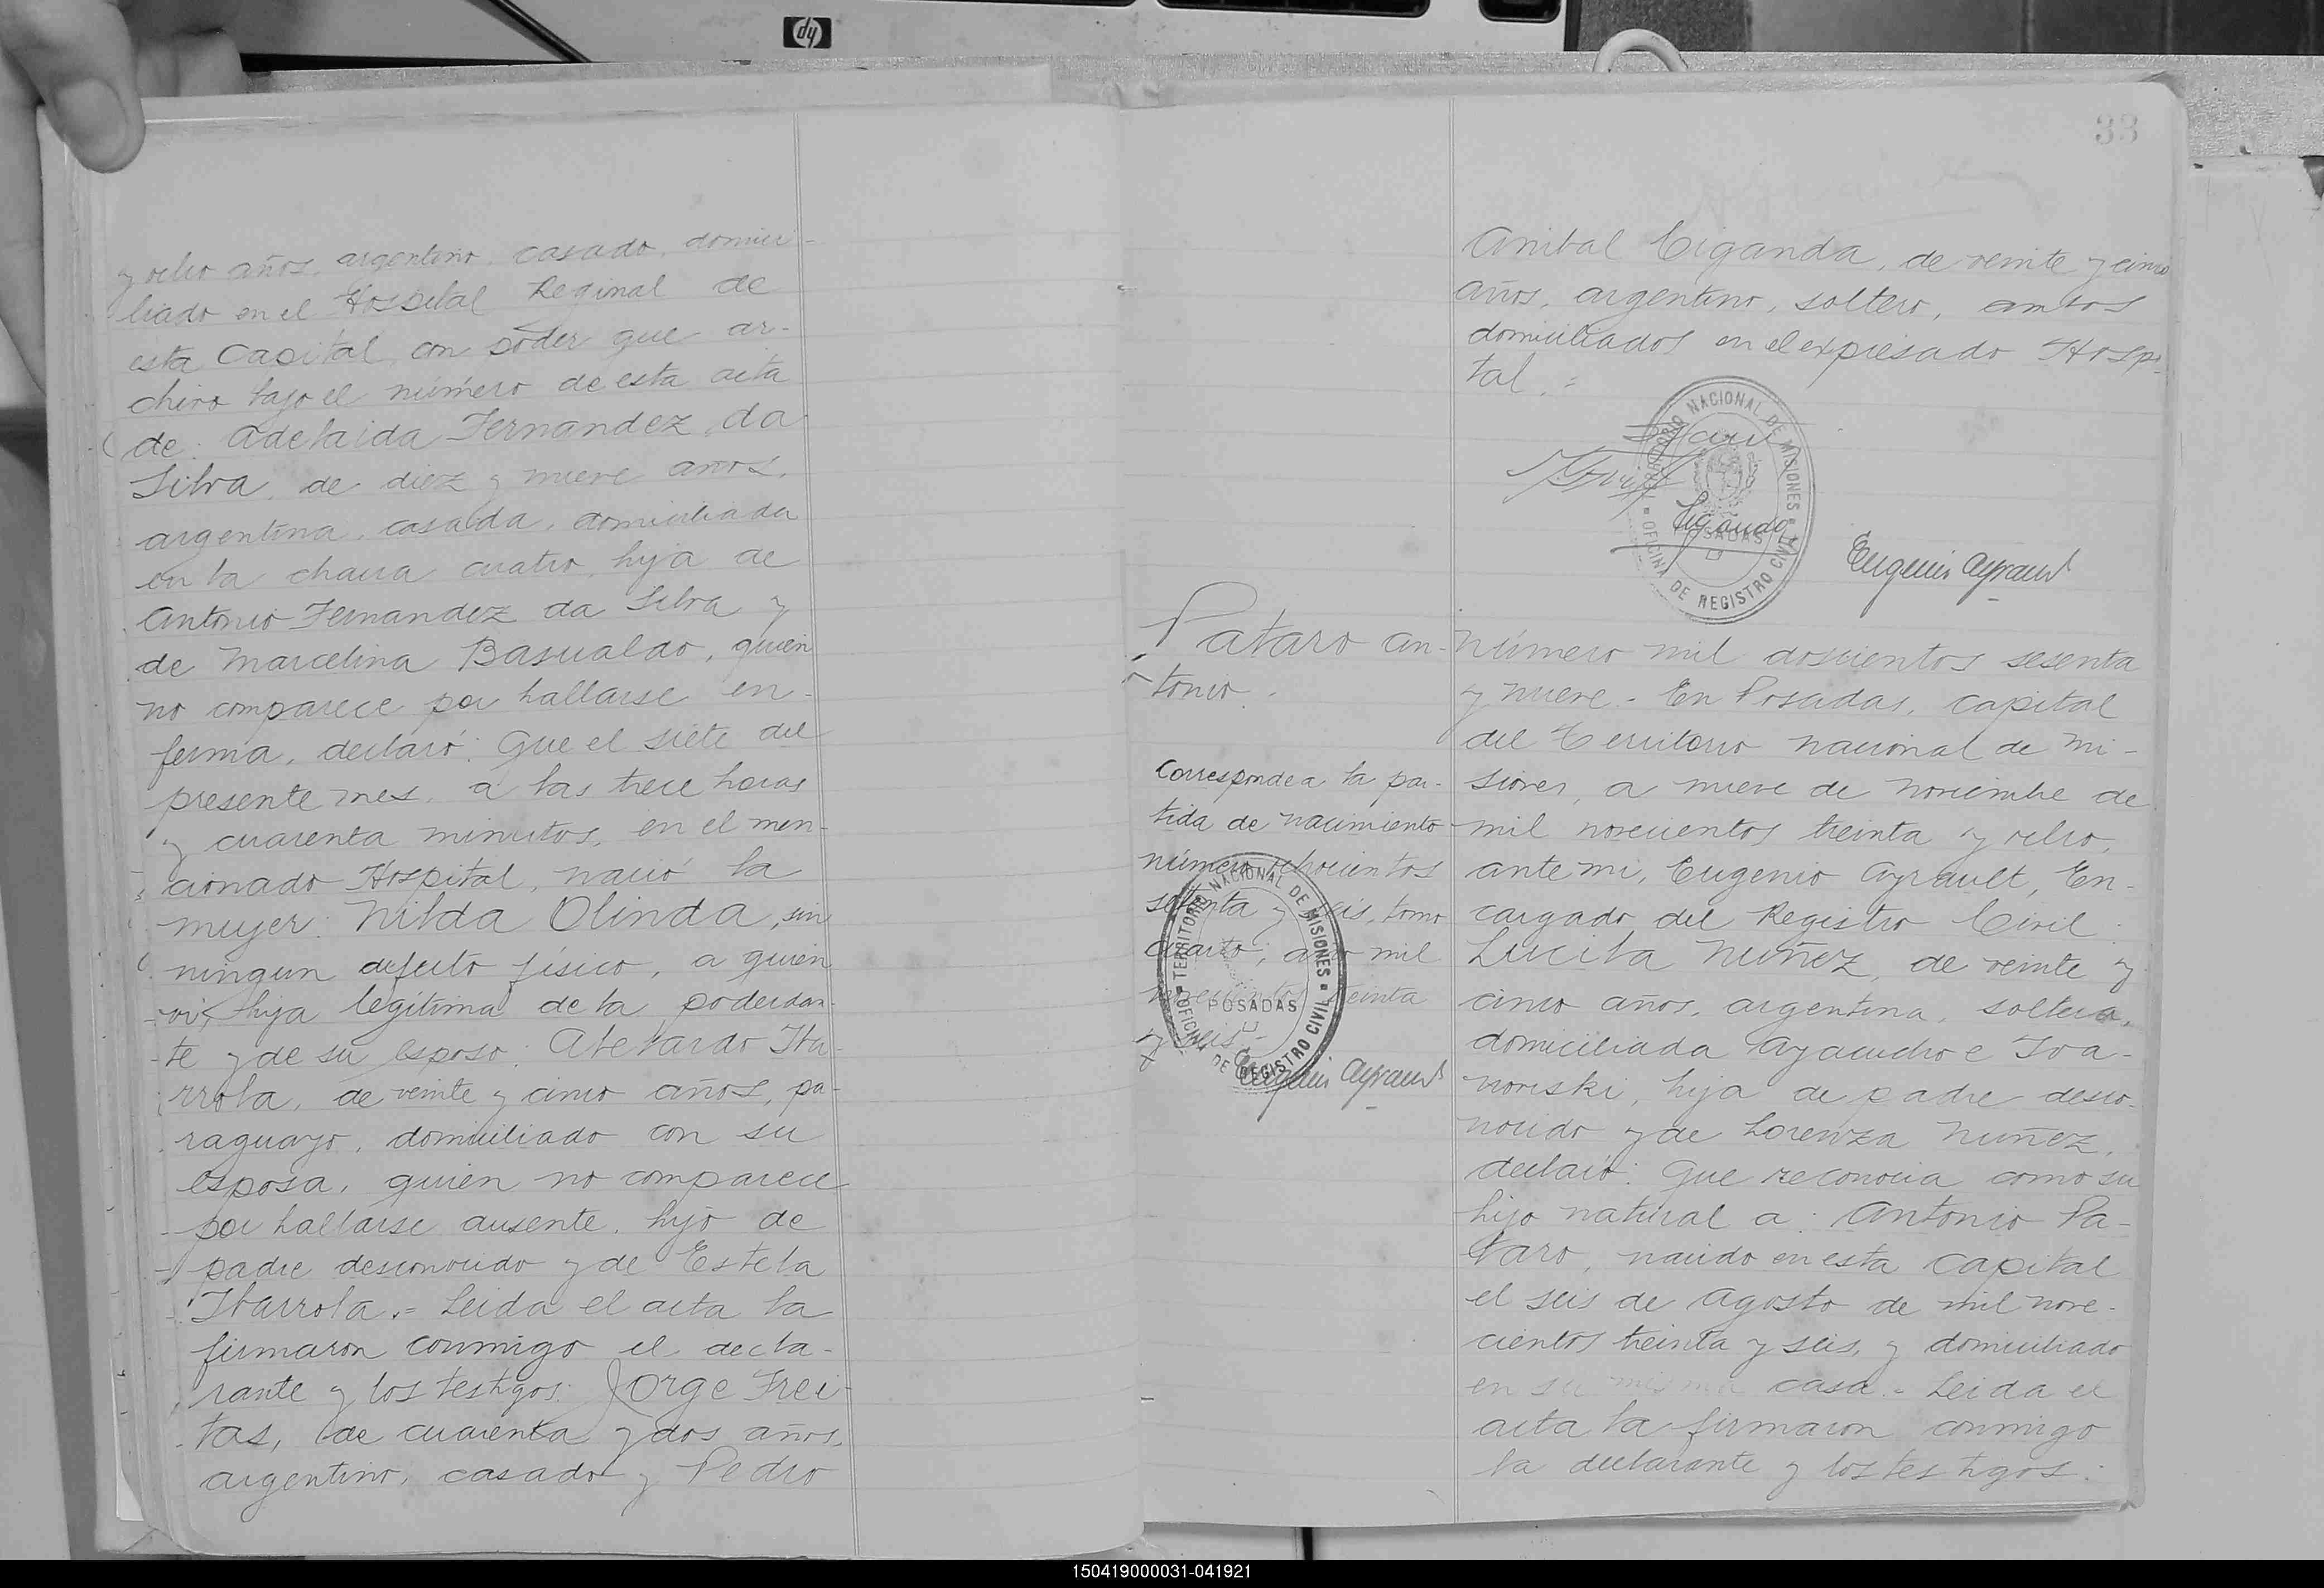 hp
y ocho años, argentino, casado, domici-
liado en el Hospital Reginal de
esta Capital, con poder que ar-
chivo bajo el número de esta acta
de: Adelaida Fernandez da
Silva, de diez y nueve años,
argentina, casada, domiciliada
en la chacra cuatro, hija de
Antonio Fernandez da Silva y
de Marcelina Basualdo, quien
no comparece por hallarse en-
ferma, declaró: Que el siete del
presente mes, a las trece horas
y cuarenta minutos, en el men-
cionado Hospital, nació la
mujer: Nilda Olinda, sin
ningun defecto físico, a quien
vi, hija legítima de la poderdan-
te y de su esposo: Abelardo Iba-
rrola, de veinte y cinco años, pa-
raguayo, domiciliado con su
esposa, quien no comparece
por hallarse ausente, hijo de
padre desconocido y de Estela
Ibarrola.= Leida el acta la
firmaron conmigo el decla-
rante y los testigos: Jorge Frei-
tas, de cuarenta y dos años,
argentino, casado y Pedro
33
Anibal Ciganda, de veinte y cinco
años, argentino, soltero, ambos
domiciliados en el expresado Hospi-
tal.=
TERRITORIO NACIONAL DE MISIONES
POSADAS
OFICINA DE REGISTRO CIVIL
Eugenio Ayrault
Pataro An-
tonio.
Corresponde a la par-
tida de nacimiento
número ochocientos
setenta y seis, tomo
cuarto, año mil
novecientos treinta
y seis.-
TERRITORIO NACIONAL DE MISIONES
POSADAS
OFICINA DE REGISTRO CIVIL
Eugenio Ayrault
Número mil doscientos sesenta
y nueve.- En Posadas, Capital
del Territorio Nacional de Mi-
siones, a nueve de Noviembre de
mil novecientos treinta y ocho,
ante mi, Eugenio Ayrault, En-
cargado del Registro Civil:
Lucila Nuñez, de veinte y
cinco años, argentina, soltera,
domiciliada Ayacucho e Iva-
noviski, hija de padre desco-
nocido y de Lorenza Nuñez,
declaró: Que reconocia como su
hijo natural a: Antonio Pa-
taro, nacido en esta Capital
el seis de Agosto de mil nove-
cientos treinta y seis, y domiciliado
en su misma casa.- Leida el
acta la firmaron conmigo
la declarante y los testigos:
150419000031-041921